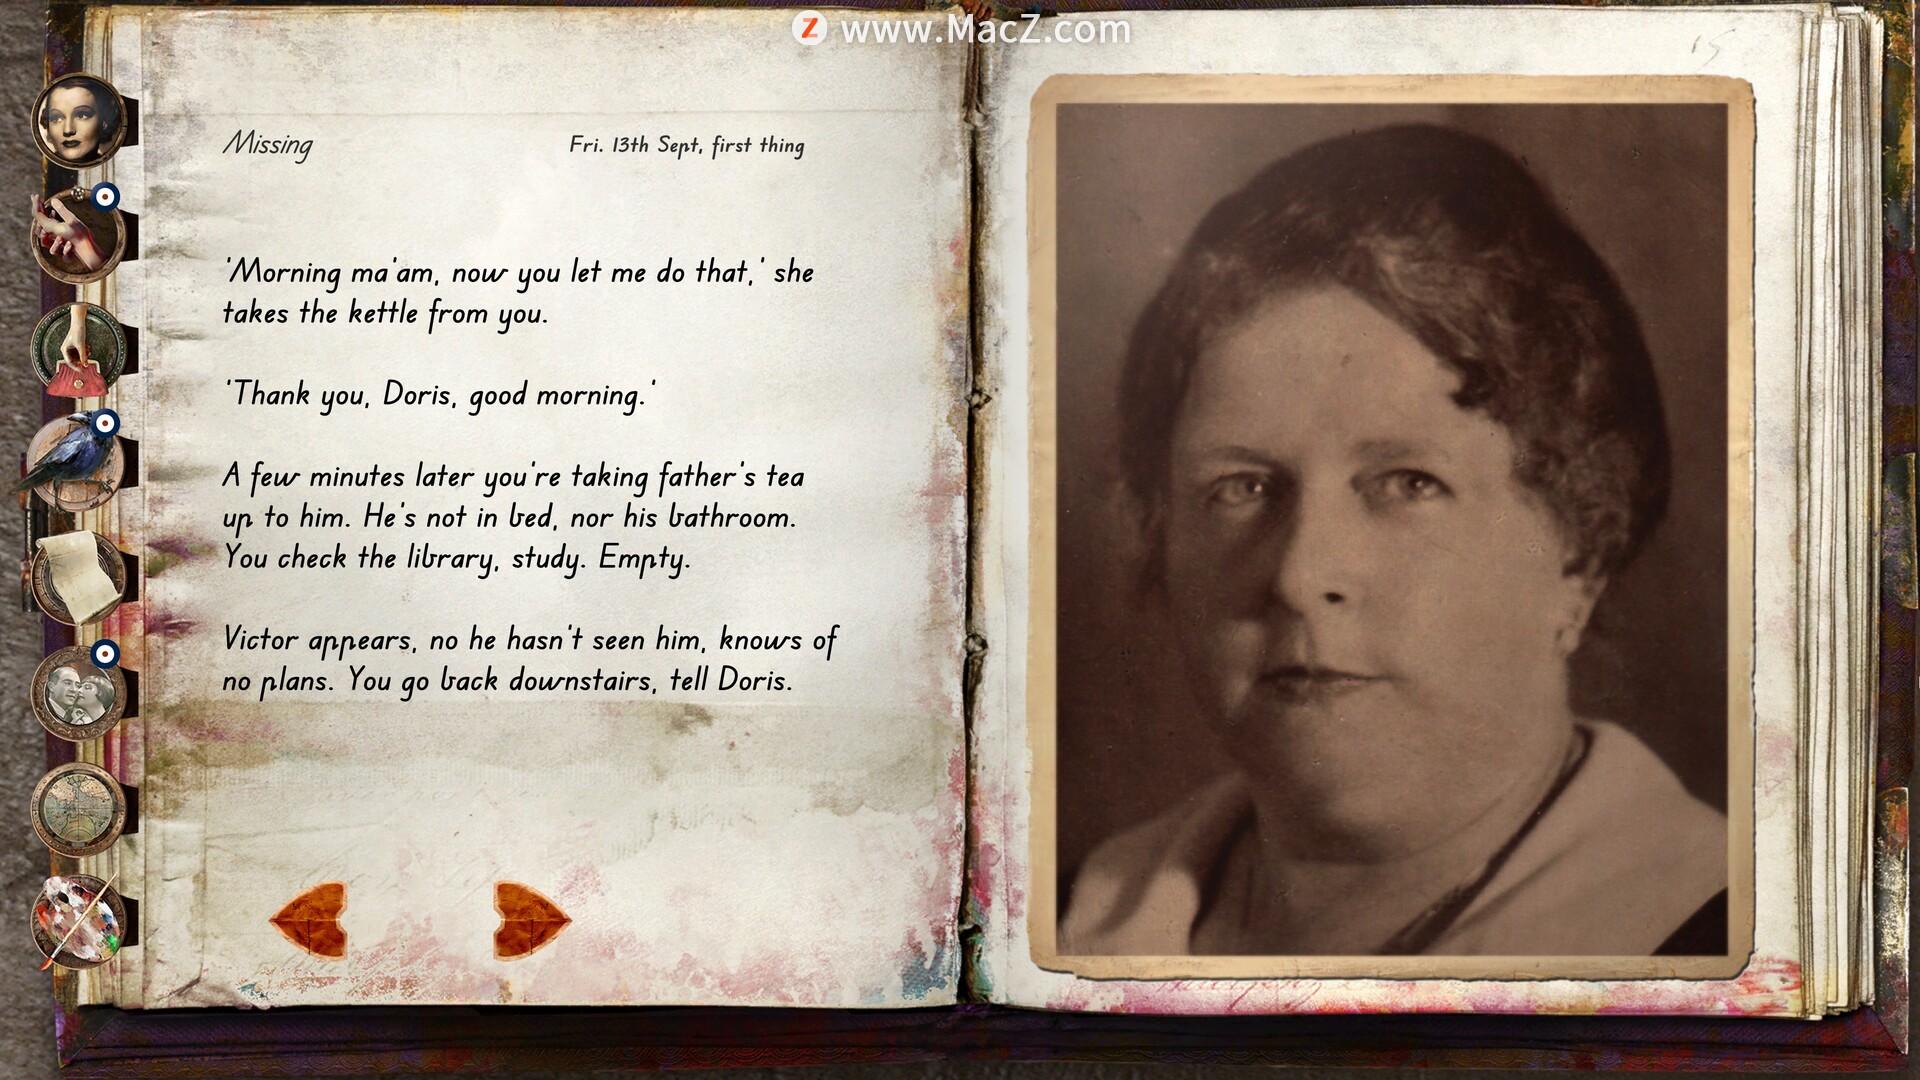 www.MacZ.com
15
Missing
Fri. 13th Sept, first thing
'Morning ma'am, now you let me do that,' she
takes the kettle from you.
'Thank you, Doris, good morning.'
A few minutes later you're taking father's tea
up to him. He's not in bed, nor his bathroom.
You check the library, study. Empty.
Victor appears, no he hasn't seen him, knows of
no plans. You go back downstairs, tell Doris.